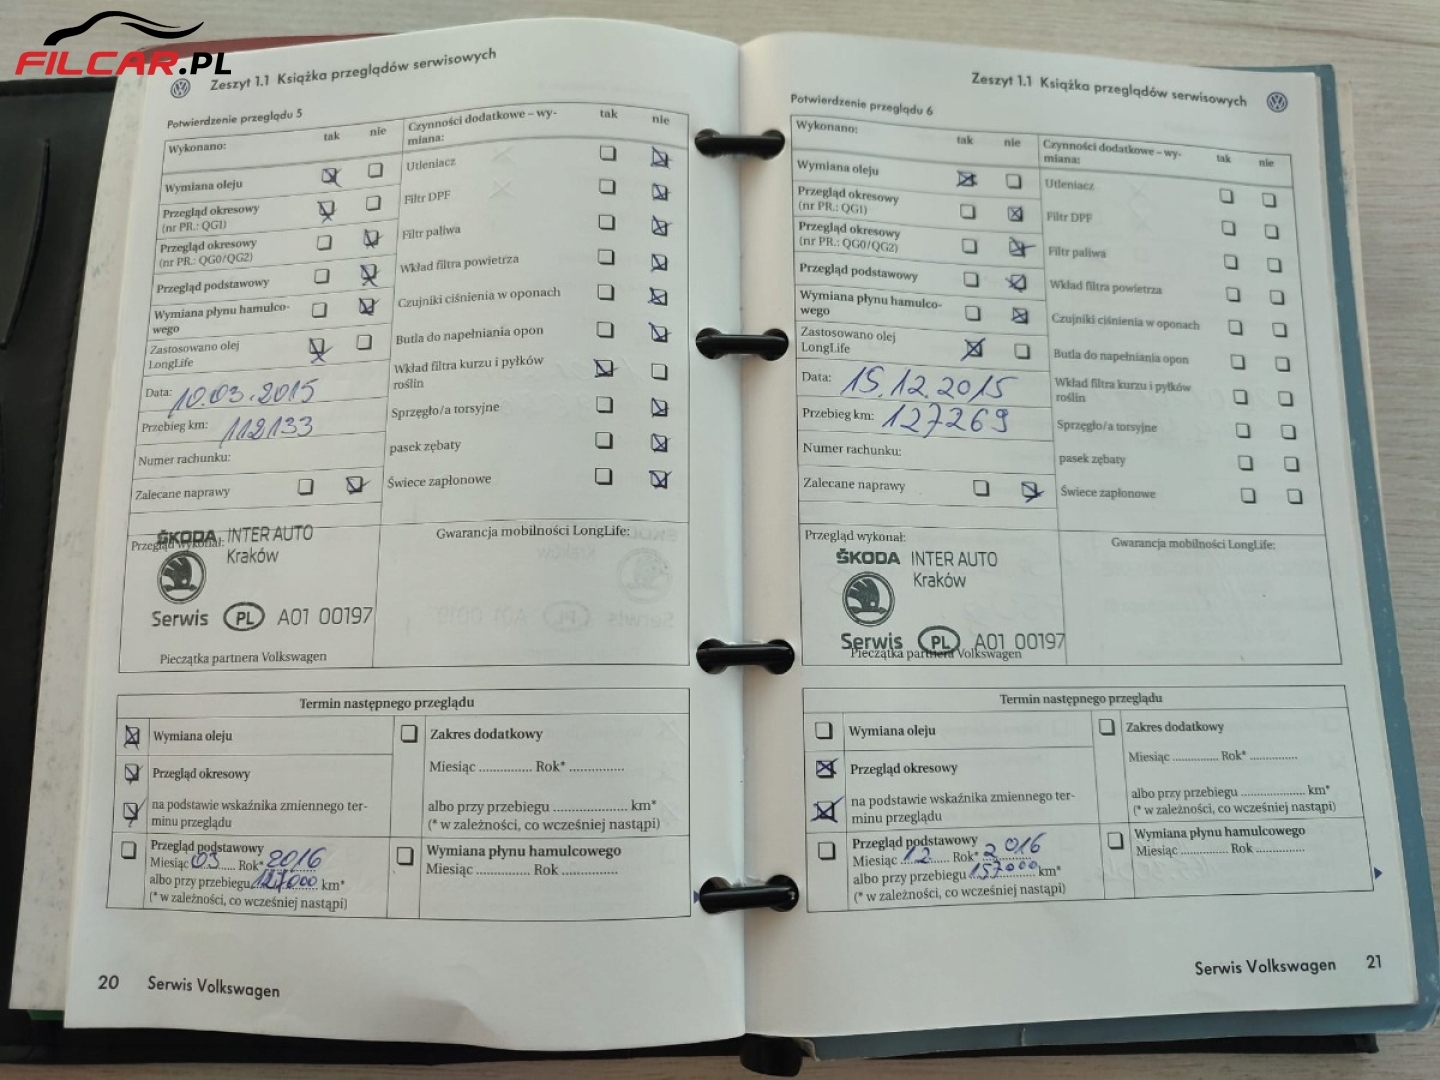 FILCAR.PL
Zeszyt 1.1 Książka przeglądów serwisowych
Potwierdzenie przeglądu 5
Wykonano:
tak
nie
Czynności dodatkowe – wy-
miana:
tak
nie
Wymiana oleju
Przegląd okresowy
(nr PR.: QG1)
Przegląd okresowy
(nr PR.: QG0/QG2)
Przegląd podstawowy
Wymiana płynu hamulco-
wego
Zastosowano olej
LongLife
Data: 10.03.2015
Przebieg km: 112133
Numer rachunku:
Zalecane naprawy
Utleniacz
Filtr DPF
Filtr paliwa
Wkład filtra powietrza
Czujniki ciśnienia w oponach
Butla do napełniania opon
Wkład filtra kurzu i pyłków
roślin
Sprzęgło/a torsyjne
pasek zębaty
Świece zapłonowe
Przegląd wykonał:
ŠKODA INTER AUTO
Kraków
Serwis PL A01 00197
Pieczątka partnera Volkswagen
Gwarancja mobilności LongLife:
Termin następnego przeglądu
Wymiana oleju
Przegląd okresowy
na podstawie wskaźnika zmiennego ter-
minu przeglądu
Przegląd podstawowy
Miesiąc 03 Rok* 2016
albo przy przebiegu 127000 km*
(* w zależności, co wcześniej nastąpi)
Zakres dodatkowy
Miesiąc ............... Rok* ...............
albo przy przebiegu .................... km*
(* w zależności, co wcześniej nastąpi)
Wymiana płynu hamulcowego
Miesiąc ............... Rok ...............
20 Serwis Volkswagen
Zeszyt 1.1 Książka przeglądów serwisowych
Potwierdzenie przeglądu 6
Wykonano:
tak
nie
Czynności dodatkowe – wy-
miana:
tak
nie
Wymiana oleju
Przegląd okresowy
(nr PR.: QG1)
Przegląd okresowy
(nr PR.: QG0/QG2)
Przegląd podstawowy
Wymiana płynu hamulco-
wego
Zastosowano olej
LongLife
Data: 15.12.2015
Przebieg km: 127269
Numer rachunku:
Zalecane naprawy
Utleniacz
Filtr DPF
Filtr paliwa
Wkład filtra powietrza
Czujniki ciśnienia w oponach
Butla do napełniania opon
Wkład filtra kurzu i pyłków
roślin
Sprzęgło/a torsyjne
pasek zębaty
Świece zapłonowe
Przegląd wykonał:
ŠKODA INTER AUTO
Kraków
Serwis PL A01 00197
Pieczątka partnera Volkswagen
Gwarancja mobilności LongLife:
Termin następnego przeglądu
Wymiana oleju
Przegląd okresowy
na podstawie wskaźnika zmiennego ter-
minu przeglądu
Przegląd podstawowy
Miesiąc 12 Rok* 2016
albo przy przebiegu 157000 km*
(* w zależności, co wcześniej nastąpi)
Zakres dodatkowy
Miesiąc ............... Rok* ...............
albo przy przebiegu .................... km*
(* w zależności, co wcześniej nastąpi)
Wymiana płynu hamulcowego
Miesiąc ............... Rok ...............
Serwis Volkswagen 21